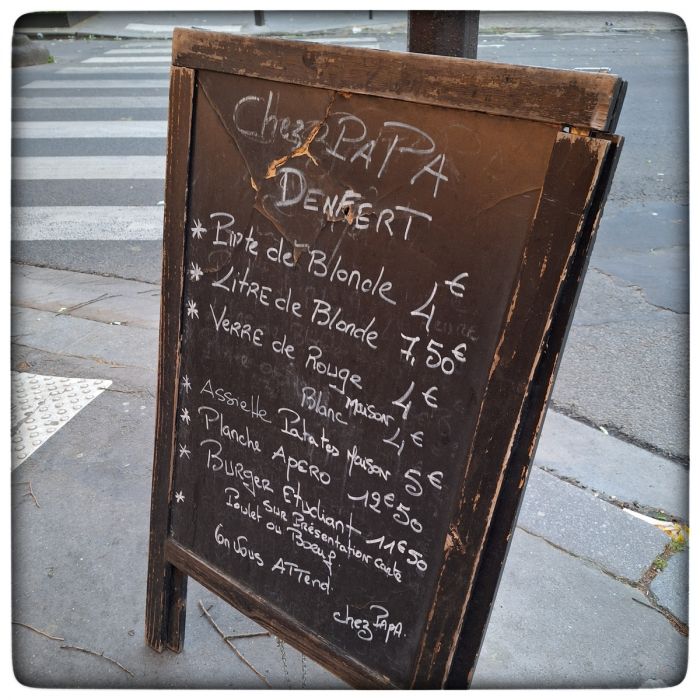 Chez PAPA
DENFERT
* Pinte de Blonde 4€
* LITRE de Blonde 7,50€
* VERRE de Rouge Maison 4€
Blanc 4€
* Assiette Patates Maison 5€
* Planche Apero 12€50
* BURGER Etudiant 11€50
sur Présentation Carte
* Poulet ou Boeuf.
On vous ATTend.
chez PAPA.